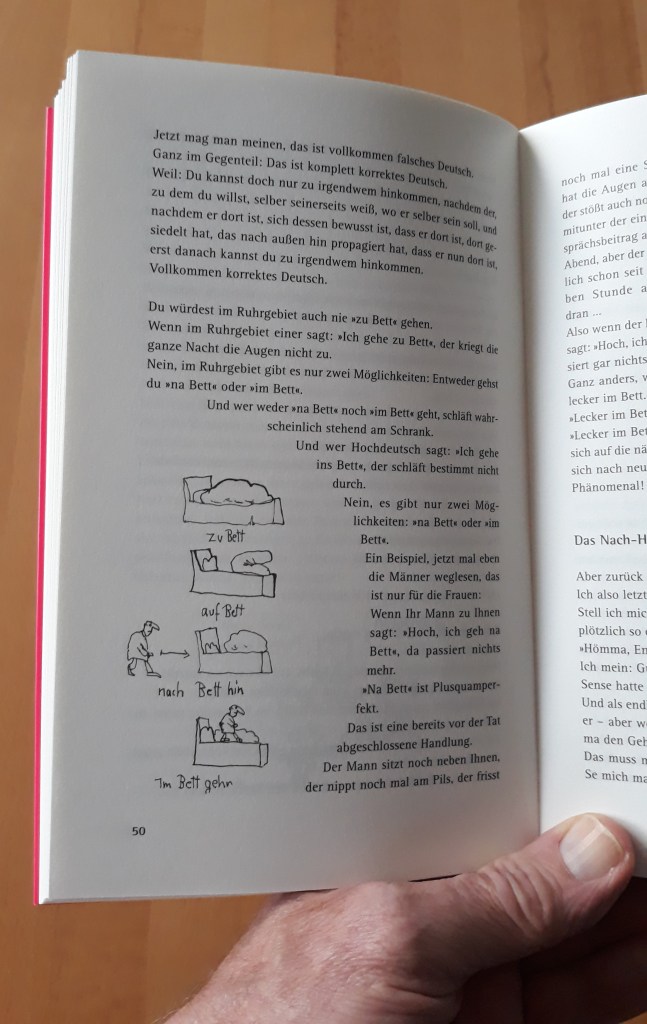 Jetzt mag man meinen, das ist vollkommen falsches Deutsch.
Ganz im Gegenteil: Das ist komplett korrektes Deutsch.
Weil: Du kannst doch nur zu irgendwem hinkommen, nachdem der,
zu dem du willst, selber seinerseits weiß, wo er selber sein soll, und
nachdem er dort ist, sich dessen bewusst ist, dass er dort ist, dort ge-
siedelt hat, das nach außen hin propagiert hat, dass er nun dort ist,
erst danach kannst du zu irgendwem hinkommen.
Vollkommen korrektes Deutsch.
Du würdest im Ruhrgebiet auch nie »zu Bett« gehen.
Wenn im Ruhrgebiet einer sagt: »Ich gehe zu Bett«, der kriegt die
ganze Nacht die Augen nicht zu.
Nein, im Ruhrgebiet gibt es nur zwei Möglichkeiten: Entweder gehst
du »na Bett« oder »im Bett«.
Und wer weder »na Bett« noch »im Bett« geht, schläft wahr-
scheinlich stehend am Schrank.
Und wer Hochdeutsch sagt: »Ich gehe
ins Bett«, der schläft bestimmt nicht
durch.
Nein, es gibt nur zwei Mög-
lichkeiten: »na Bett« oder »im
Bett«.
Ein Beispiel, jetzt mal eben
die Männer weglesen, das
ist nur für die Frauen:
Wenn Ihr Mann zu Ihnen
sagt: »Hoch, ich geh na
Bett«, da passiert nichts
mehr.
»Na Bett« ist Plusquamper-
fekt.
Das ist eine bereits vor der Tat
abgeschlossene Handlung.
Der Mann sitzt noch neben Ihnen,
der nippt noch mal am Pils, der frisst
zu Bett
auf Bett
nach Bett hin
Im Bett gehn
50
noch mal eine
hat die Augen a
der stößt auch no
mitunter der ein
sprächsbeitrag a
Abend, aber der
lich schon seit
ben Stunde a
dran ...
Also wenn der
sagt: »Hoch, ich
siert gar nichts
Ganz anders, w
lecker im Bett.
»Lecker im Bet
»Lecker im Bet
sich auf die nä
sich nach neu
Phänomenal!
Das Nach-H
Aber zurück
Ich also letzt
Stell ich mic
plötzlich so
»Hömma, En
Ich mein: G
Sense hatte
Und als end
er – aber w
ma den Geh
Das muss m
Se mich ma